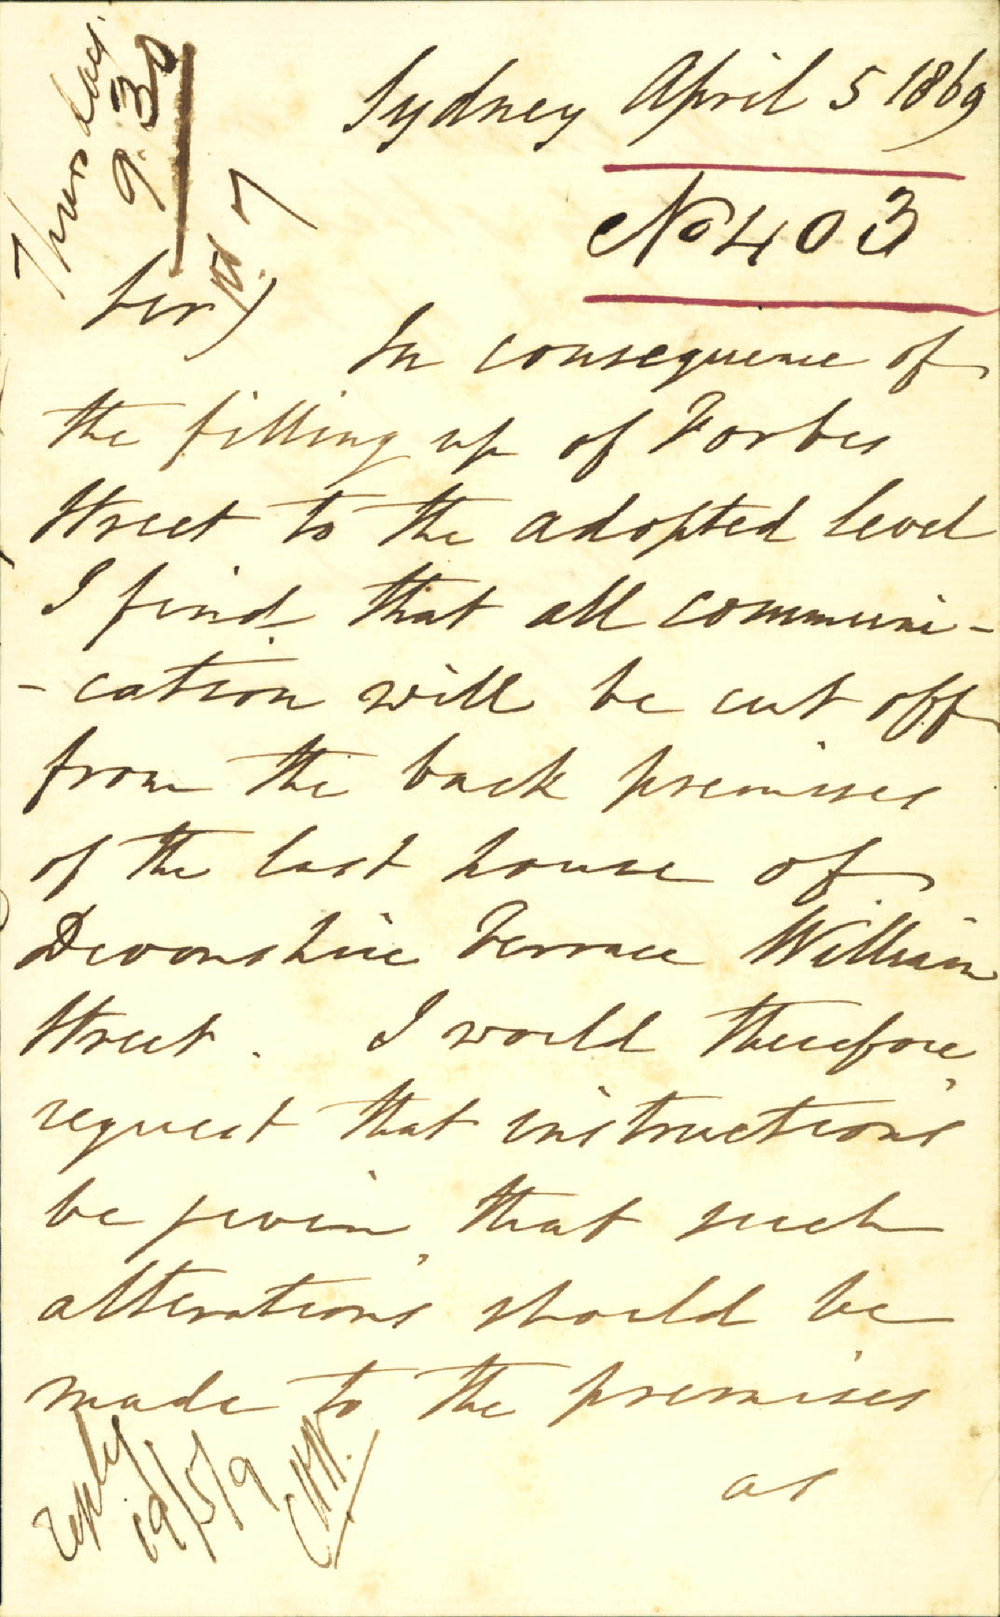 Thursday
9.30
Sydney April 5 1869
No 403
Sir)
In consequence of
the filling up of Forbes
Street to the adopted level
I find that all communi-
-cation will be cut off
from the back premises
of the last house of
Devonshire Terrace William
Street. I would therefore
request that instructions
be given that such
alterations should be
made to the premises
as
reply
19/5/9